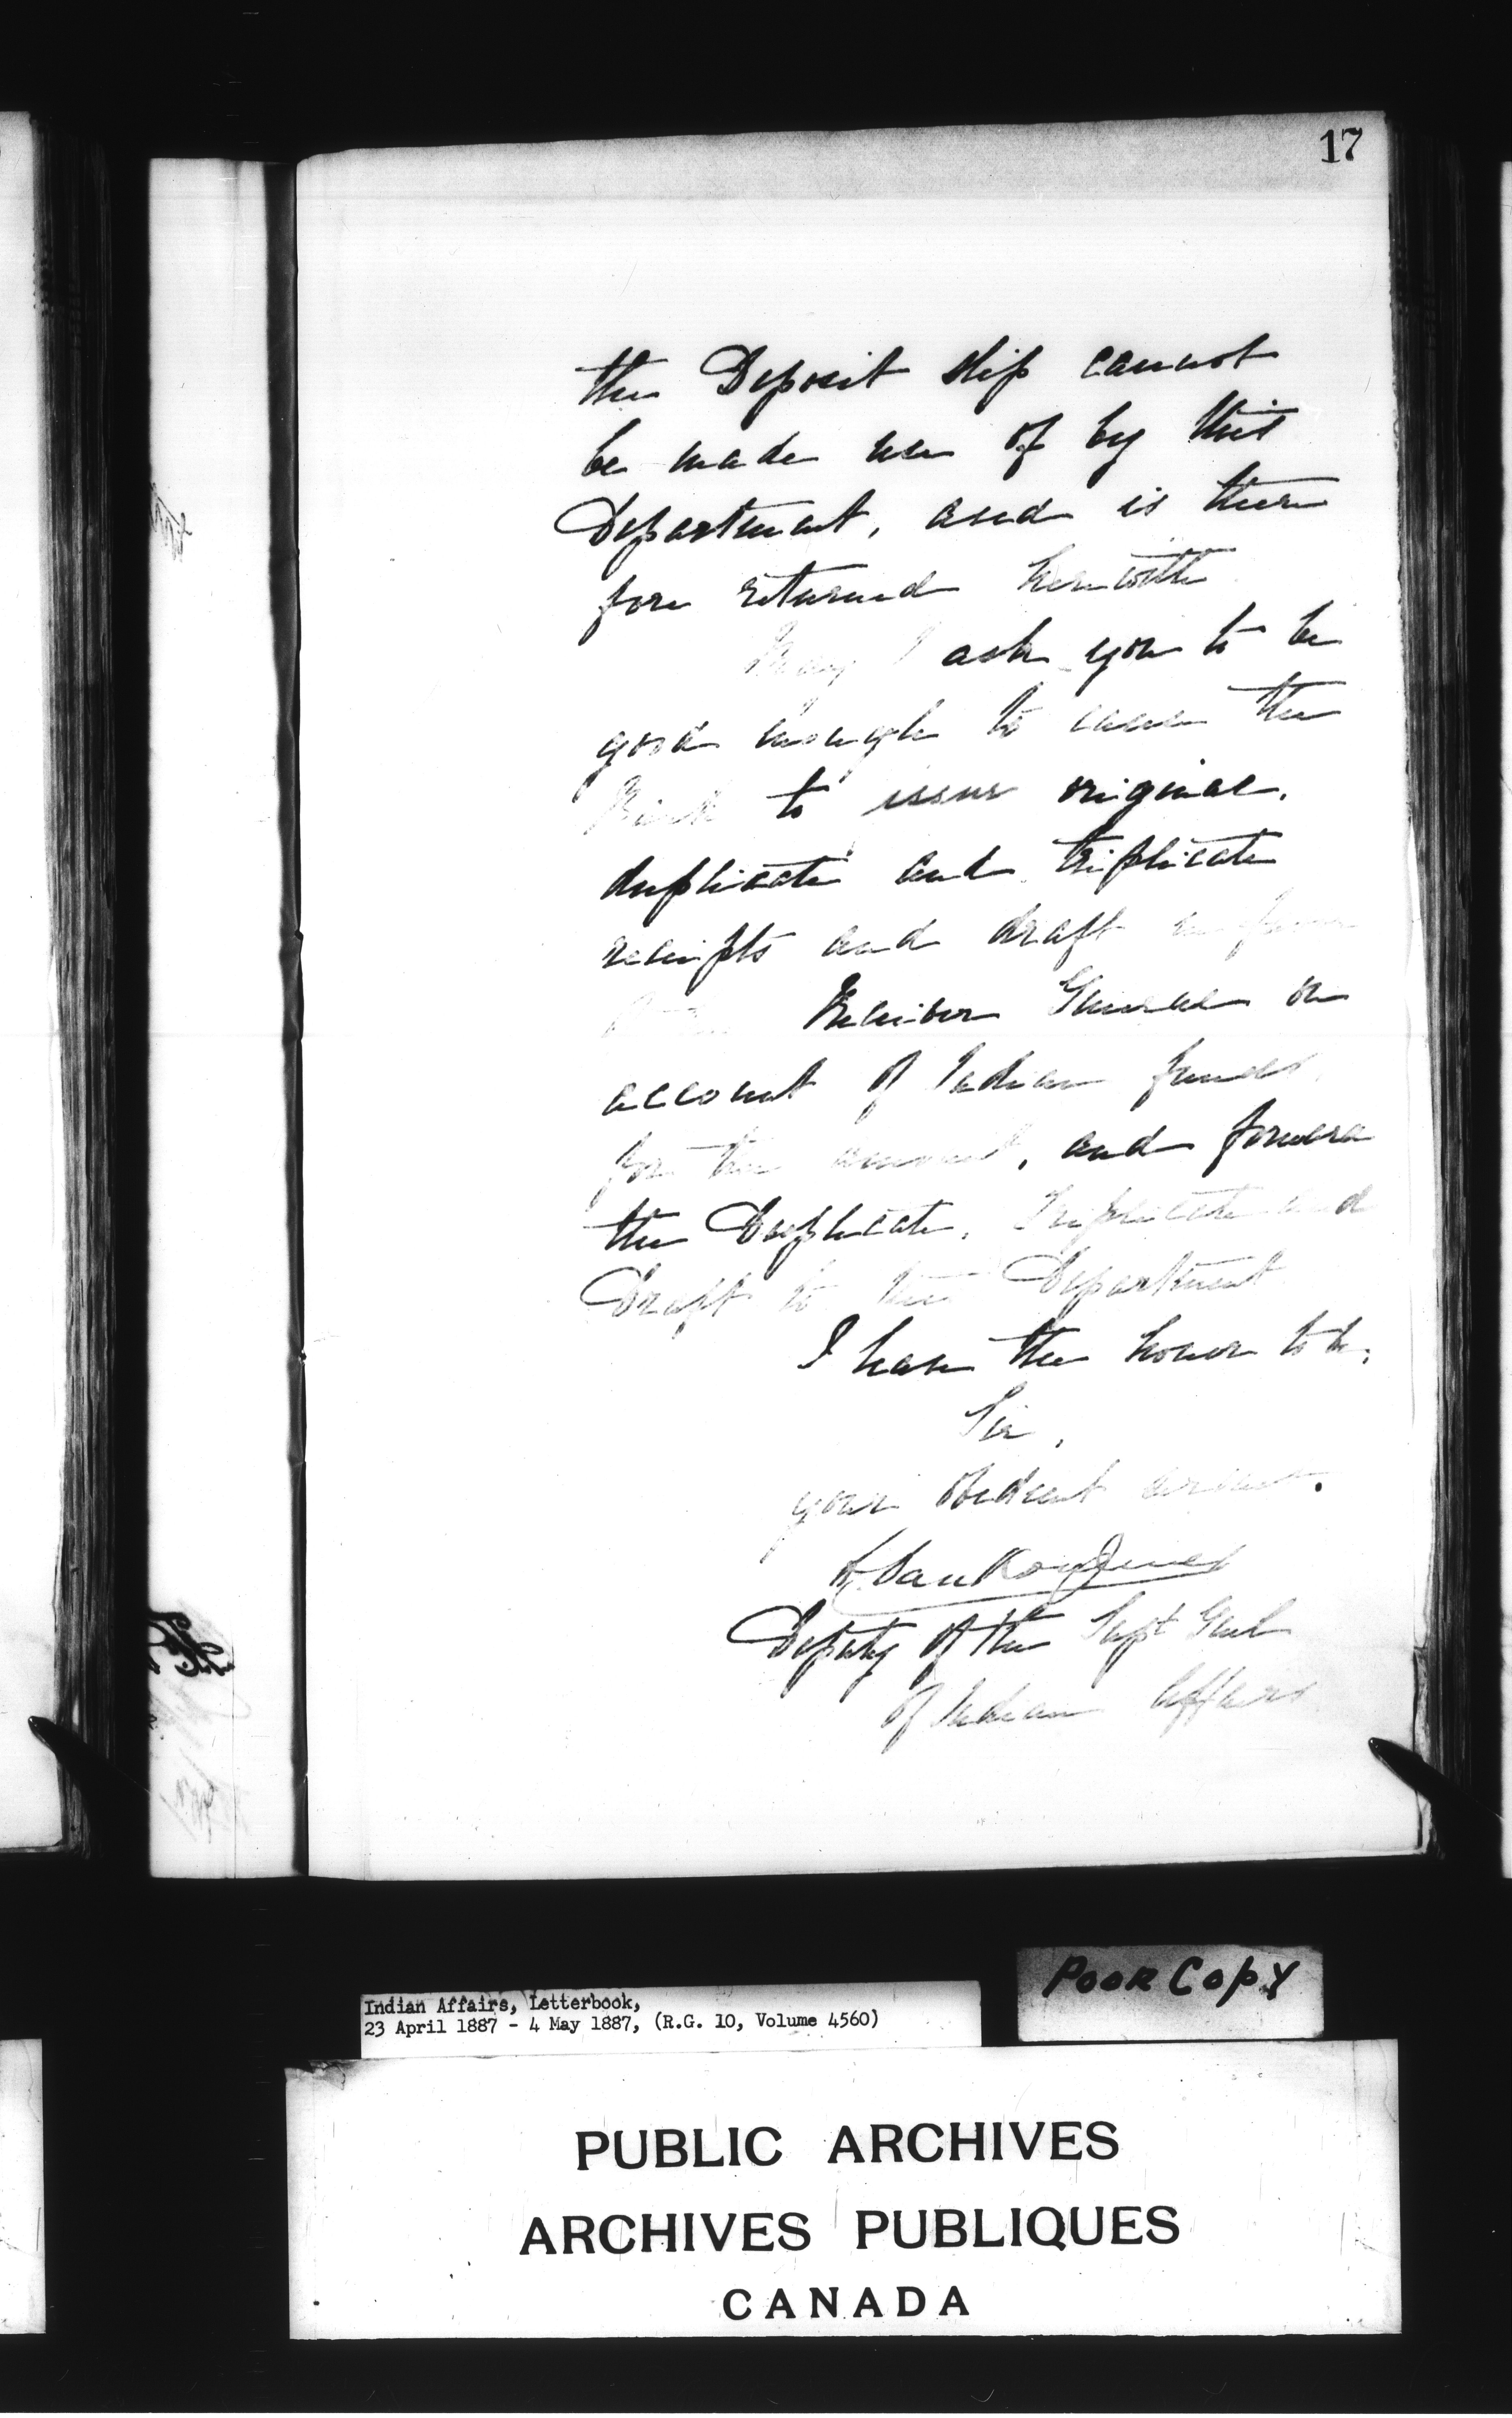 17
the Deposit slip cannot
be made use of by this
Department, and is there
fore returned herewith
May I ask you to be
good enough to cause the
Bank to issue original,
duplicate and triplicate
receipts and draft in favor
of the Receiver General on
account of Indian funds
for the amount, and forward
the Duplicate, Triplicate and
Draft to this Department
I have the honor to be,
Sir,
your obedient servant.
L. VanKoughnet
Deputy of the Supt Genl
of Indian Affairs
POOR COPY
Indian Affairs, Letterbook,
23 April 1887 - 4 May 1887, (R.G. 10, Volume 4560)
PUBLIC ARCHIVES
ARCHIVES PUBLIQUES
CANADA